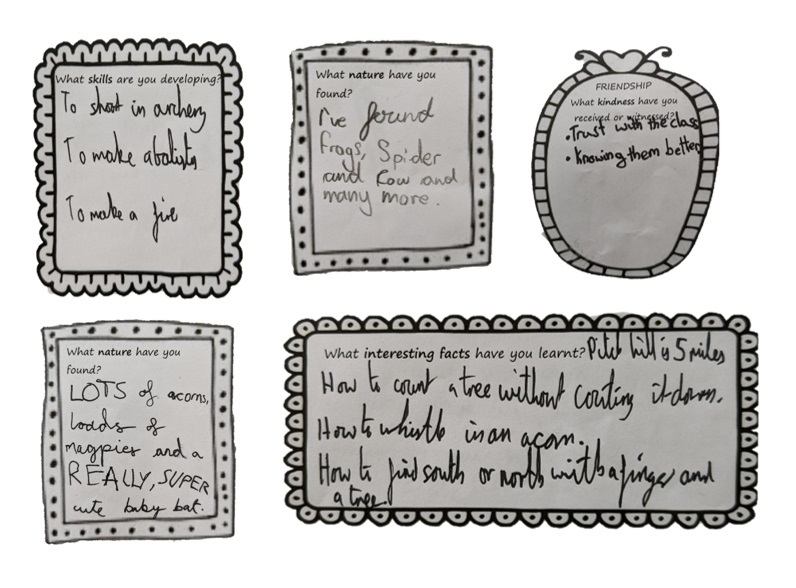 What skills are you developing?
To shoot in archery
To make a
To make a fire
What nature have you
found?
I've found
frogs, Spider
and Cow and
many more.
FRIENDSHIP
What kindness have you
received or witnessed?
• Trust with the class
• Knowing them better
What nature have you
found?
LOTS of acorns,
loads of
magpies and a
REALLY, SUPER
cute baby bat.
What interesting facts have you learnt? Pitch hill is 5 miles
How to count a tree without couting it down.
How to whistle in an acorn.
How to find south or north with a finger and
a tree.